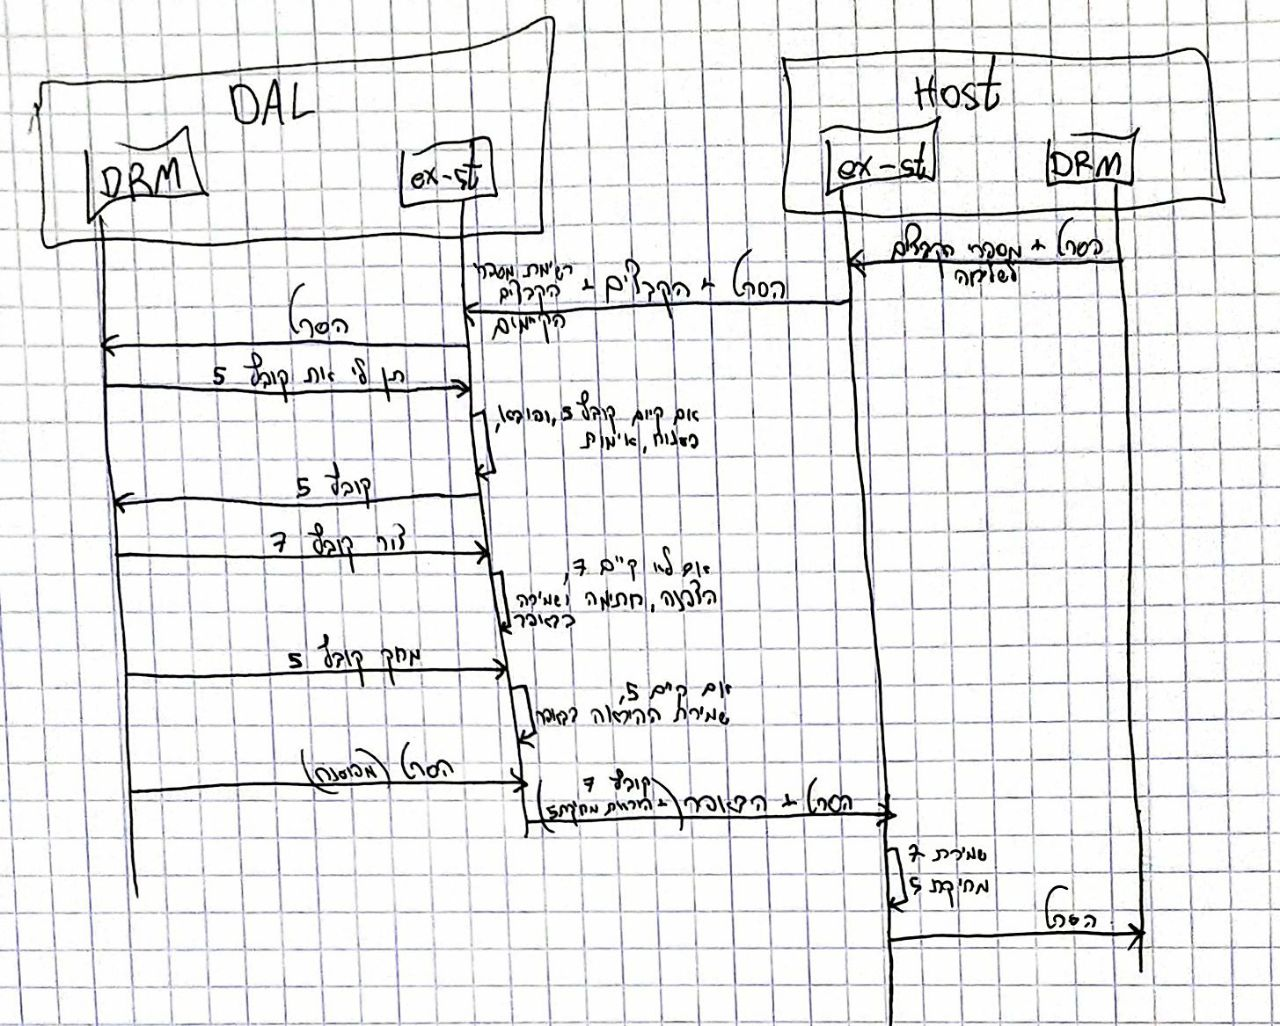 DAL
Host
DRM
ex-st
ex-st
DRM
הסרט + מספרי הקבצים
לשליחה
הסרט + הקבצים + רשימת מספרי
הקבצים
הקיימים
הסרט
תן לי את קובץ 5
אם קיים קובץ 5,
פענוח, אימות
קובץ 5
צור קובץ 7
אם לא קיים 7,
הצפנה, חתימה ושמירה
בבאפר
מחק קובץ 5
אם קיים 5,
שמירת ההוראה בבאפר
הסרט (מפוענח)
הסרט + הבאפר (קובץ 7
+ הוראת מחיקת 5)
שמירת 7
מחיקת 5
הסרט